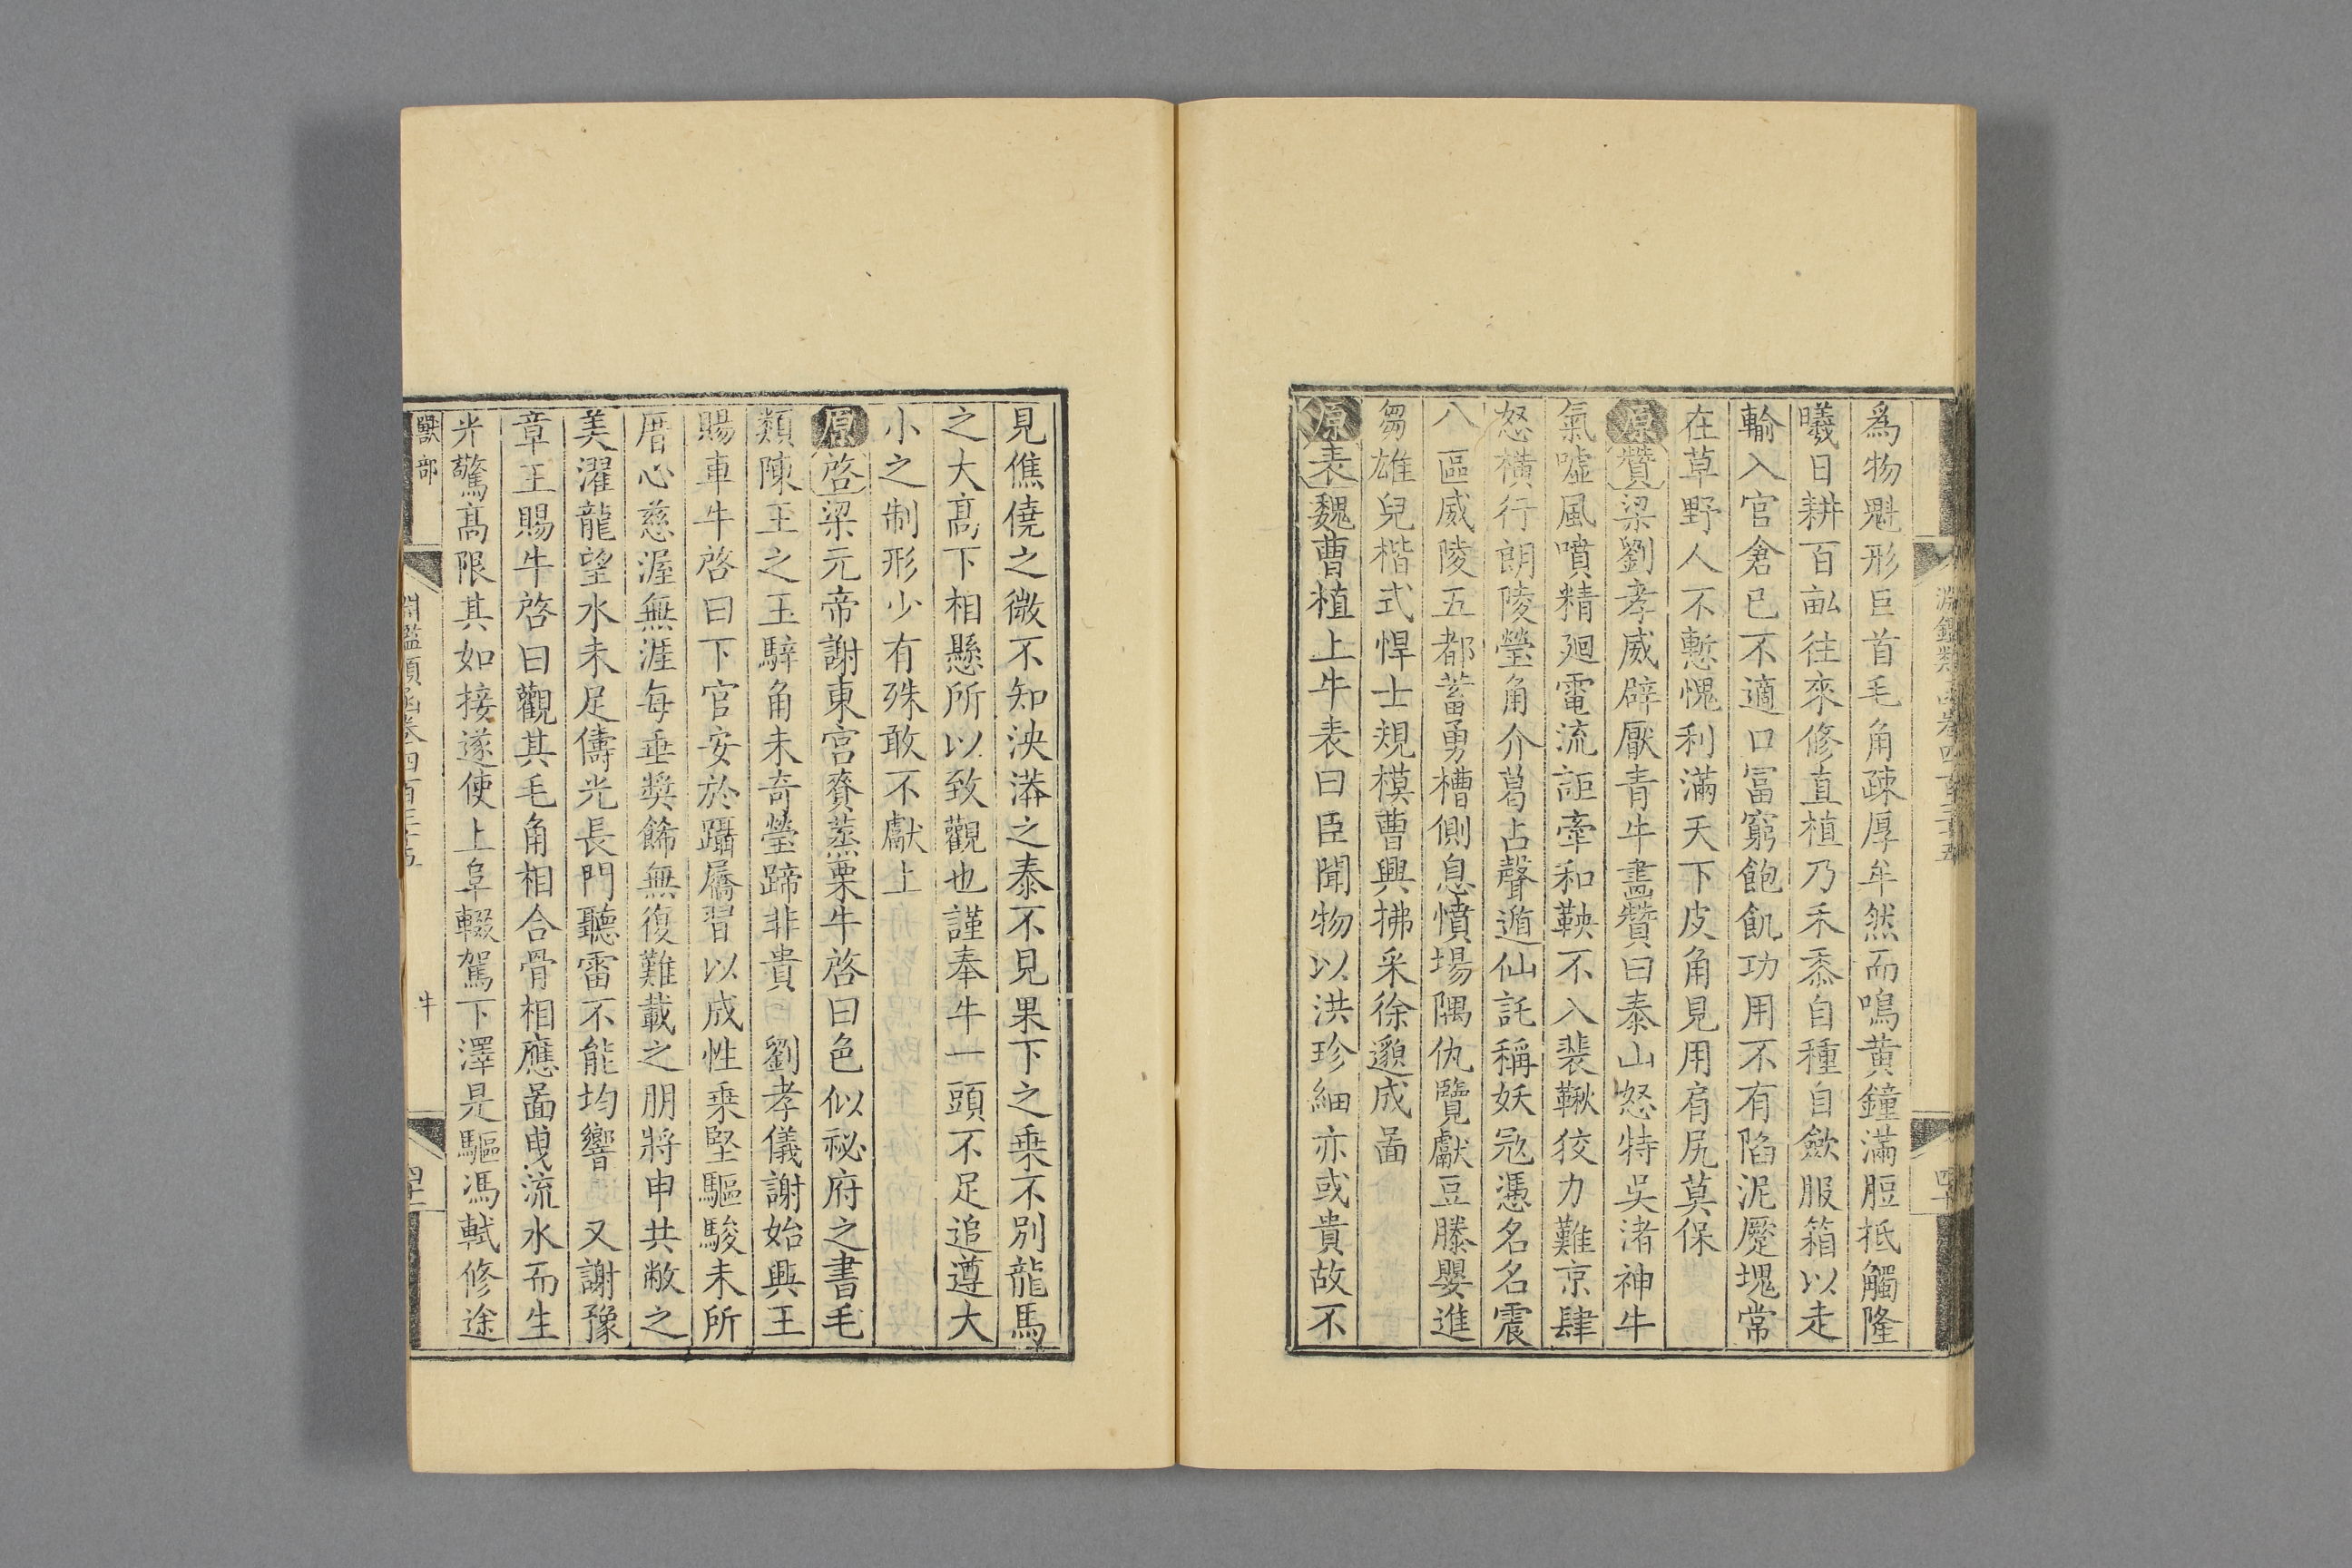 淵鑑類函卷四百三十五
爲物魁形巨首毛角疎厚牟然而鳴黄鐘滿脰抵觸隆
曦日耕百畝往來修直植乃禾黍自種自斂服箱以走
輸入官倉已不適口冨窮飽飢功用不有陷泥蹷塊常
在草野人不慙愧利滿天下皮角見用肩尻莫保
原贊梁劉孝威辟厭青牛畫贊曰泰山怒特吳渚神牛
氣噓風噴精廻電流詎牽和鞅不入裴鞦狡力難京肆
怒横行朗陵瑩角介葛占聲遁仙託稱妖冦憑名名震
八區威陵五都蓄勇槽側息憤場隅仇覽獻豆滕嬰進
芻雄兒楷式悍士規模曹興拂采徐邈成啚
原表魏曹植上牛表曰臣聞物以洪珍細亦或貴故不
見僬僥之微不知泱漭之泰不見果下之乗不別龍馬
之大髙下相懸所以致觀也謹奉牛一頭不足追遵大
小之制形少有殊敢不獻上
原啓梁元帝謝東宫賚蒸栗牛啓曰色似祕府之書毛
類陳王之玉騂角未奇瑩蹄非貴 劉孝儀謝始興王
賜車牛啓曰下官安於躡屩習以成性乗堅驅駿未所
厝心慈渥無涯每垂奬餙無復難載之朋將申共敝之
美濯龍望水未足儔光長門聽雷不能均響 又謝豫
章王賜牛啓曰觀其毛角相合骨相應啚曵流水而生
光驚髙限其如接遂使上阜輟駕下澤是驅馮軾修途
獸部 淵鑑類函卷四百三十五 牛